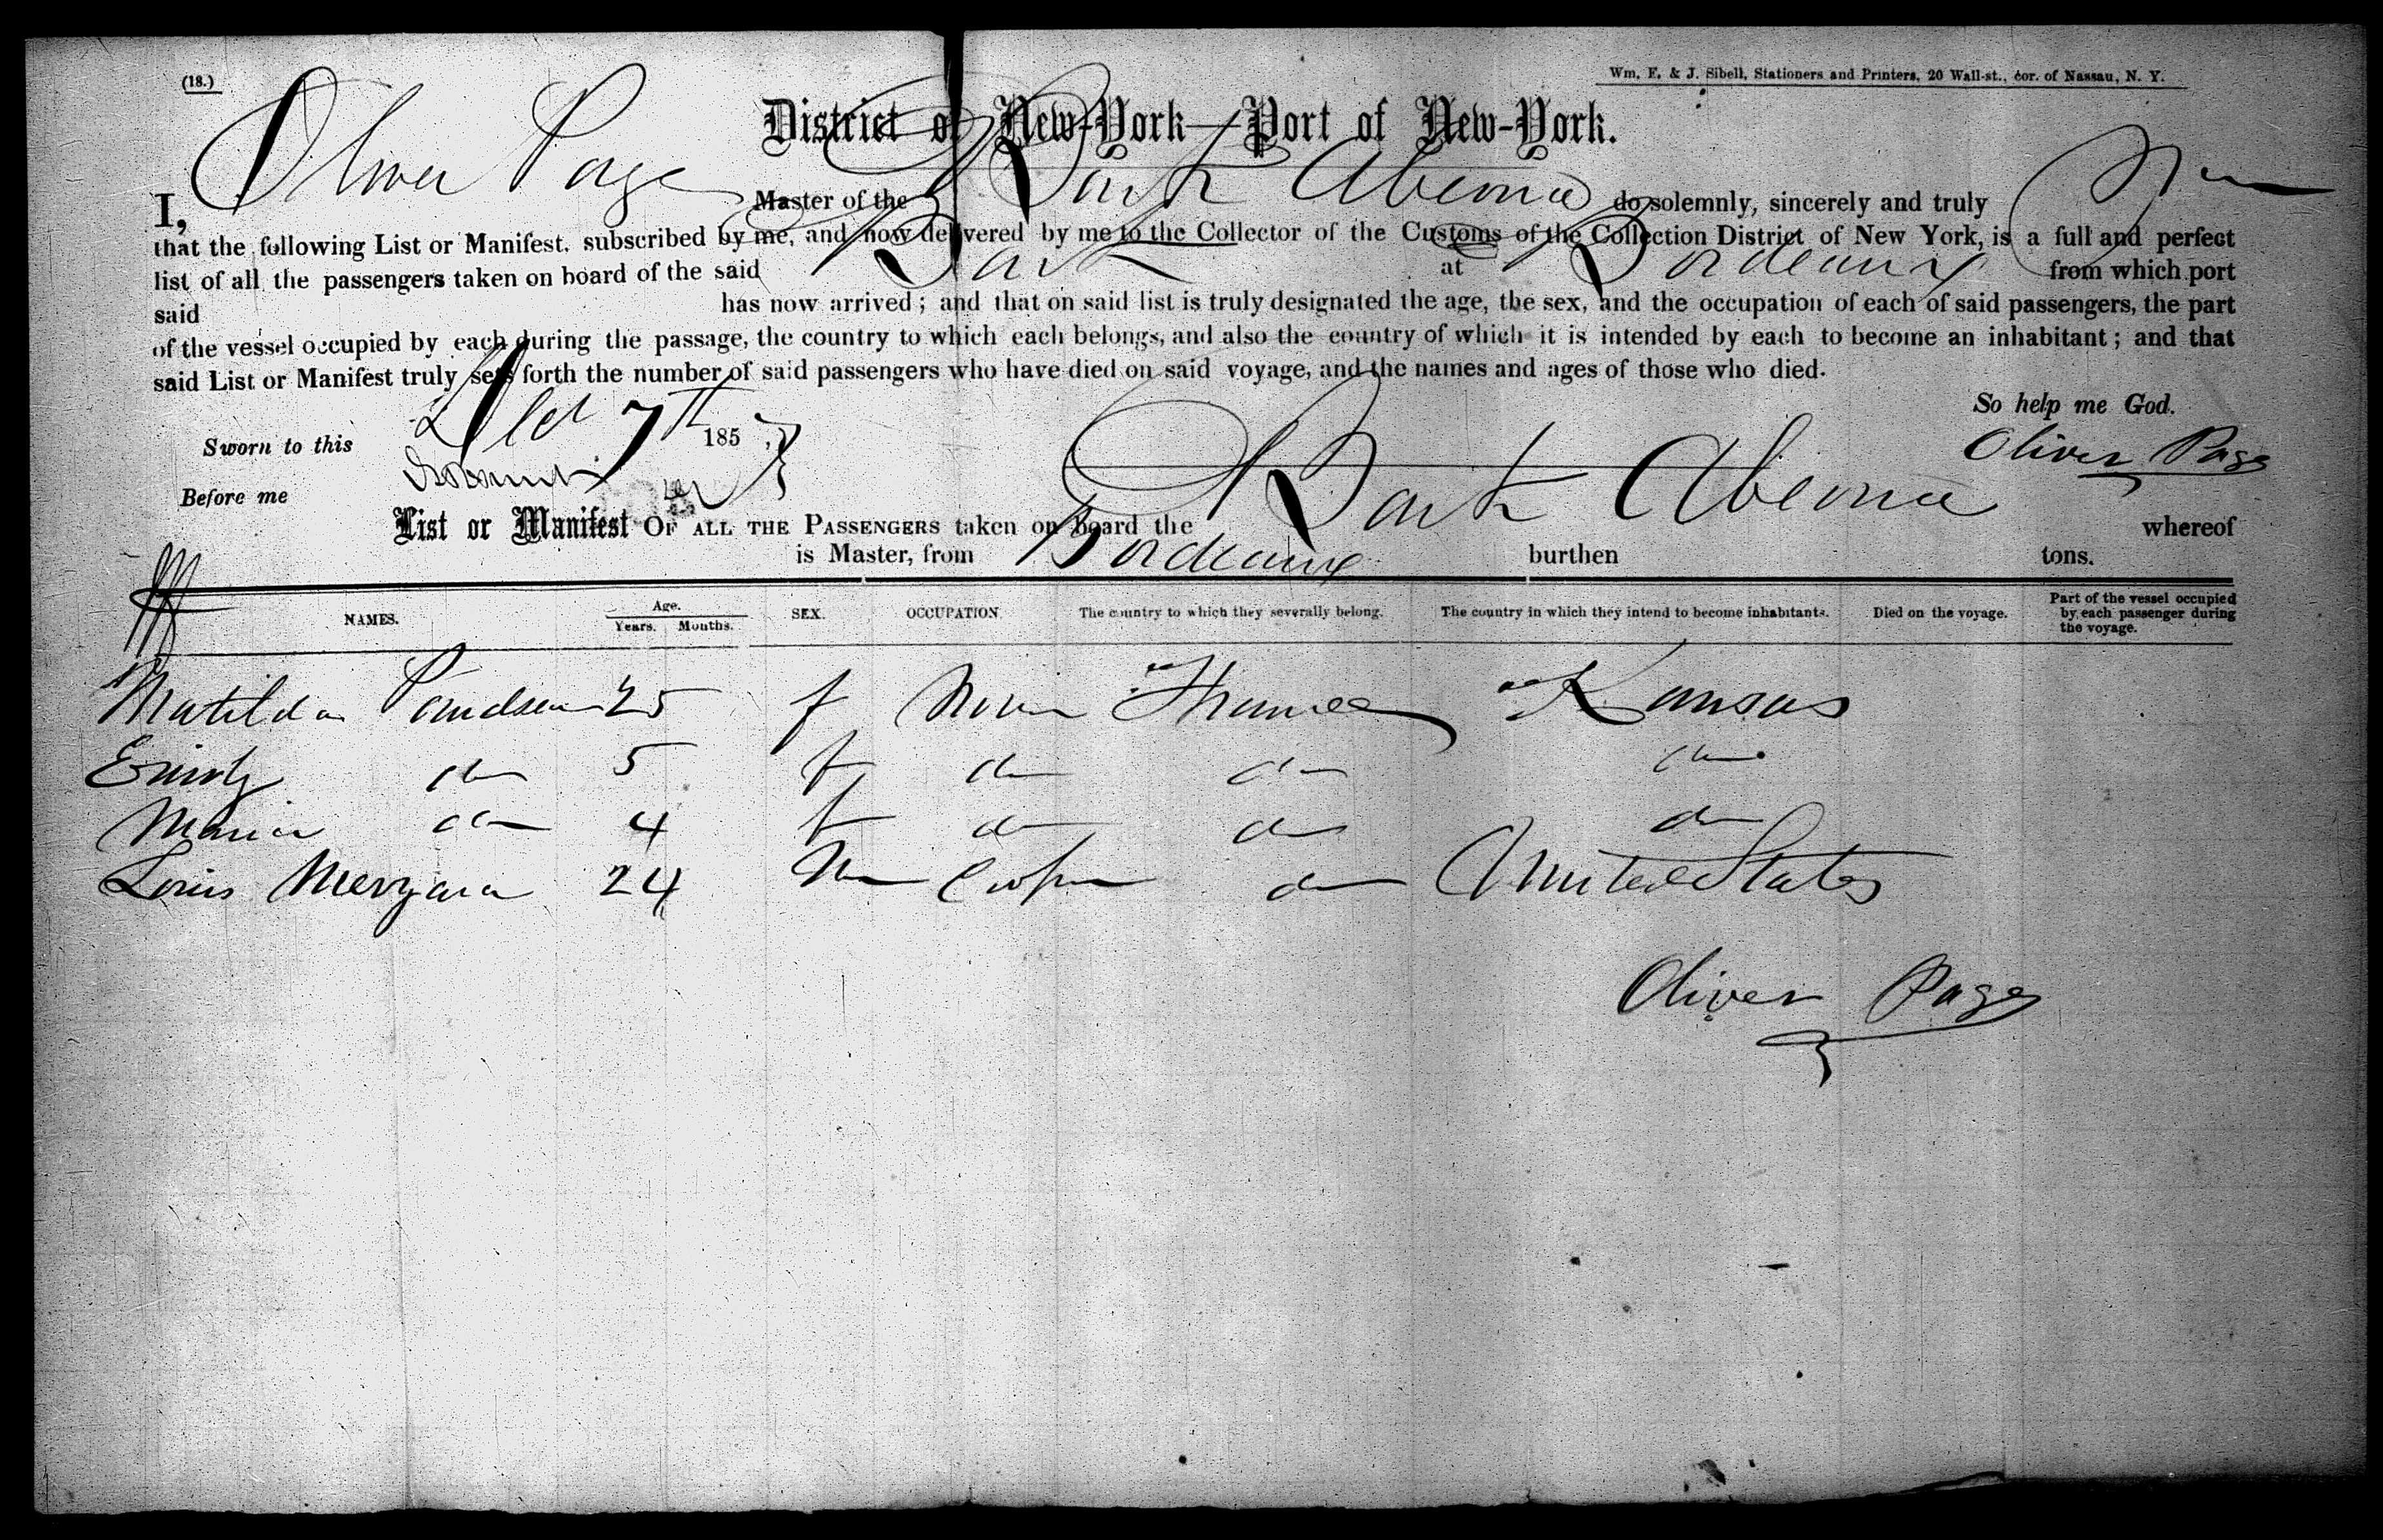 (18.)
Wm. F. & J. Sibell, Stationers and Printers, 20 Wall-st., cor. of Nassau, N. Y.
District of New-York—Port of New-York.
I, Oliver Page Master of the Bark Abeona do solemnly, sincerely and truly
that the following List or Manifest, subscribed by me, and now delivered by me to the Collector of the Customs of the Collection District of New York, is a full and perfect
list of all the passengers taken on board of the said Bark at Bordeaux from which port
said has now arrived; and that on said list is truly designated the age, the sex, and the occupation of each of said passengers, the part
of the vessel occupied by each during the passage, the country to which each belongs, and also the country of which it is intended by each to become an inhabitant; and that
said List or Manifest truly sets forth the number of said passengers who have died on said voyage, and the names and ages of those who died.
So help me God.
Sworn to this 7th 185 Oliver Page
Before me
List or Manifest OF ALL THE PASSENGERS taken on board the Bark Abeona whereof
is Master, from Bordeaux burthen tons.
NAMES. Age. Years. Months. SEX. OCCUPATION. The country to which they severally belong. The country in which they intend to become inhabitants. Died on the voyage. Part of the vessel occupied by each passenger during the voyage.
Matilda 25 f None France Kansas
Emily do 5 f do do do
Maria do 4 f do do do
Louis 24 M do United States
Oliver Page